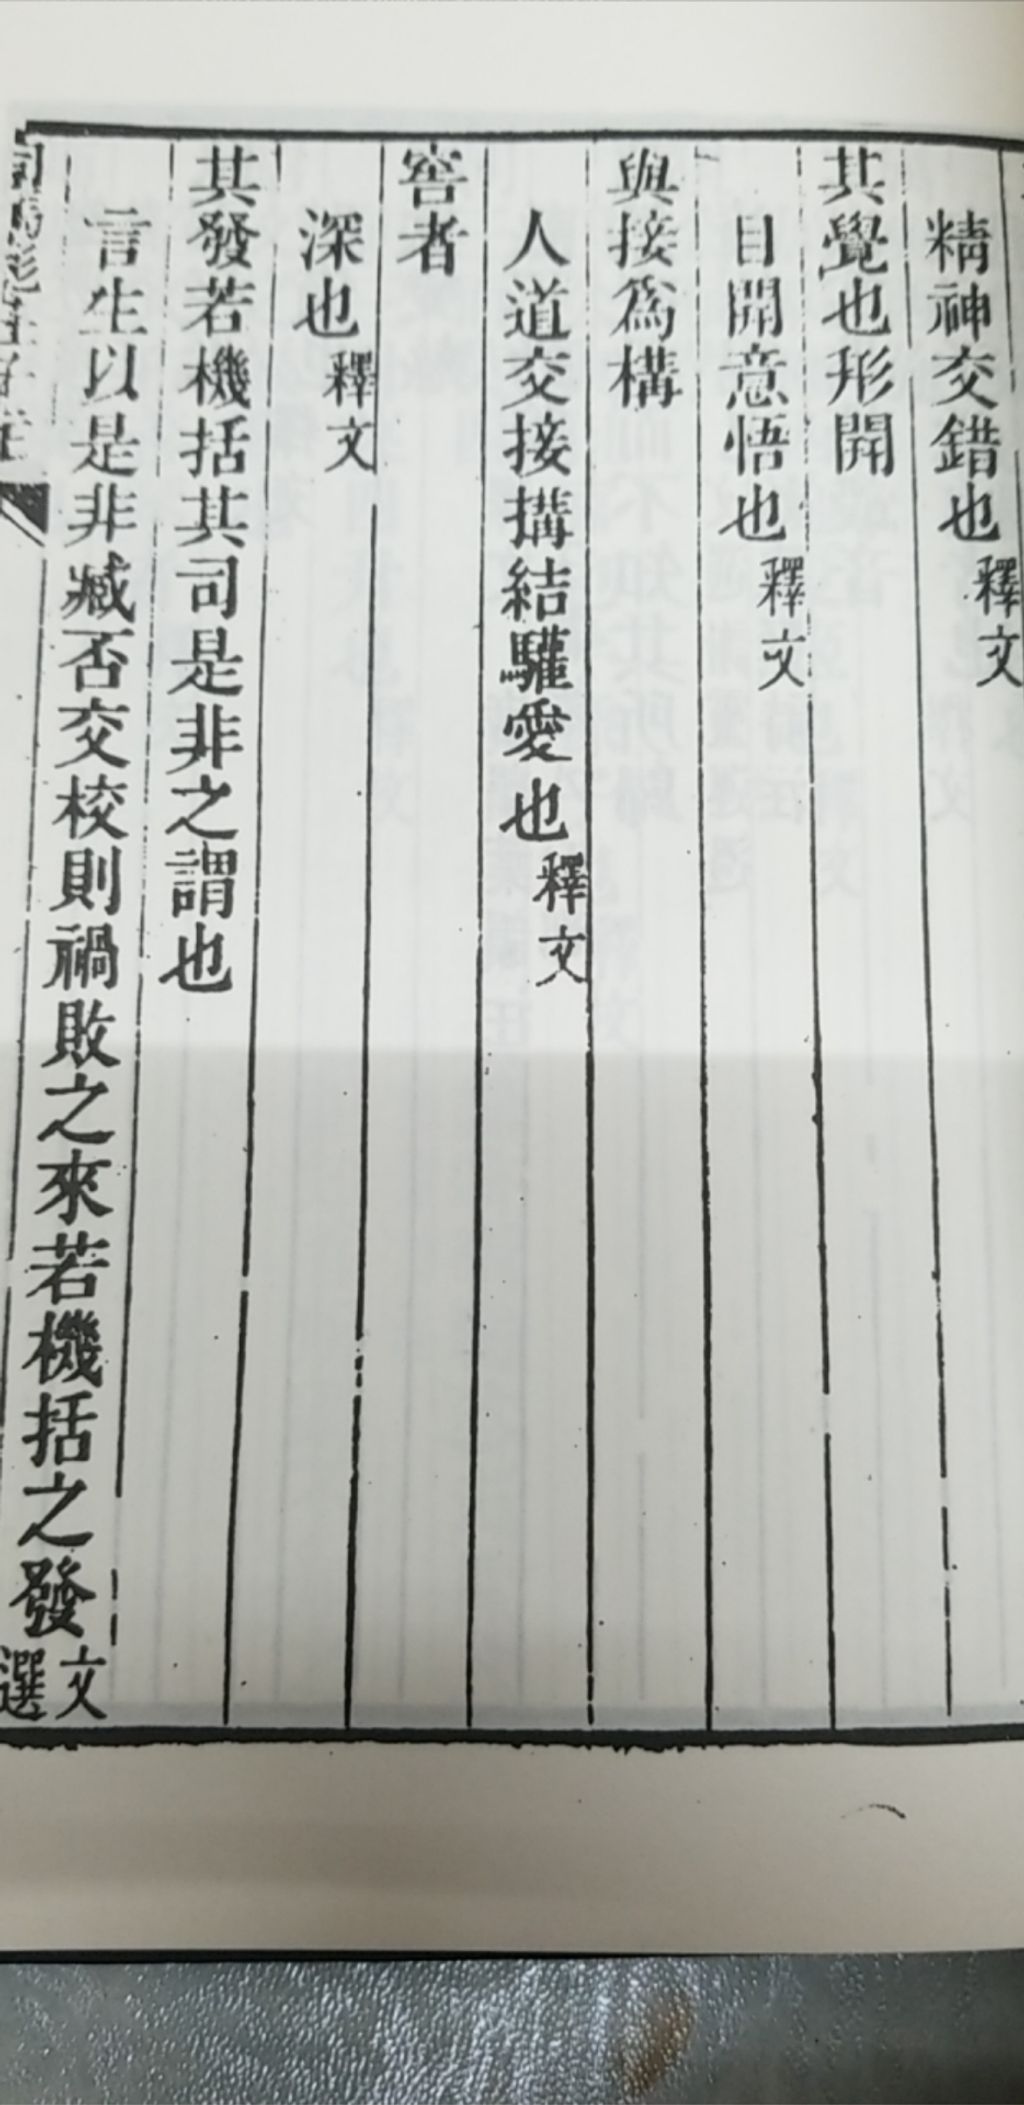 精神交錯也釋文
其覺也形開
目開意悟也釋文
與接爲構
人道交接搆結驩愛也釋文
窖者
深也釋文
其發若機括其司是非之謂也
言生以是非臧否交校則禍敗之來若機括之發文選
司馬彪莊子注